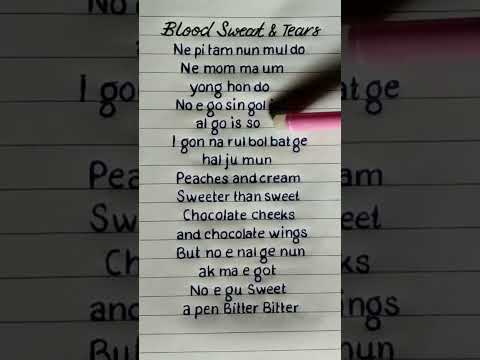 Blood Sweat & Tears
Ne pi tam nun mul do
Ne mom ma um
yong hon do
No e go sin gol
al go is so
I gon na rul bol bat ge
hal ju mun
Peaches and cream
Sweeter than sweet
Chocolate cheeks
and chocolate wings
But no e nal ge nun
ak ma e got
No e gu Sweet
a pen Bitter Bitter